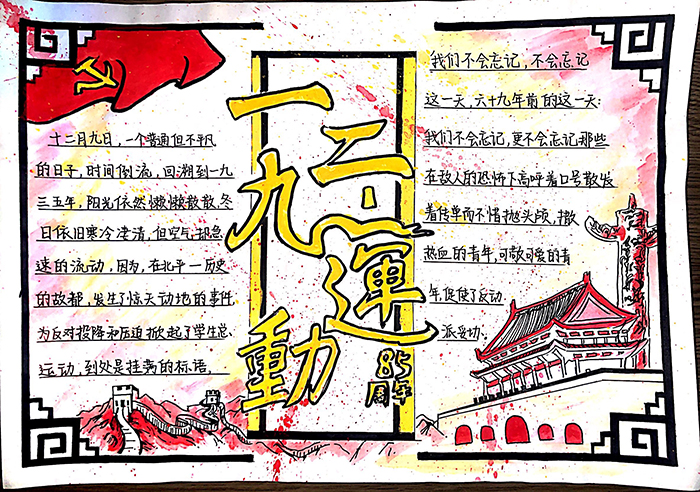 十二月九日，一个普通但不平凡
的日子，时间倒流，回溯到一九
三五年，阳光依然懒懒散散，冬
日依旧寒冷凄清，但空气却急
速的流动，因为，在北平一历史
的故都，发生了惊天动地的事件
为反对投降和压迫掀起了学生总、
运动，到处是挂满的标语、
一
二
九
运
動
85
周年
我们不会忘记，不会忘记
这一天，六十九年前的这一天：
我们不会忘记，更不会忘记那些
在敌人的恐怖下高呼着口号散发
着传单而不惜抛头颅，撒
热血的青年，可敬可爱的青
年，促使了反动
派妥协、